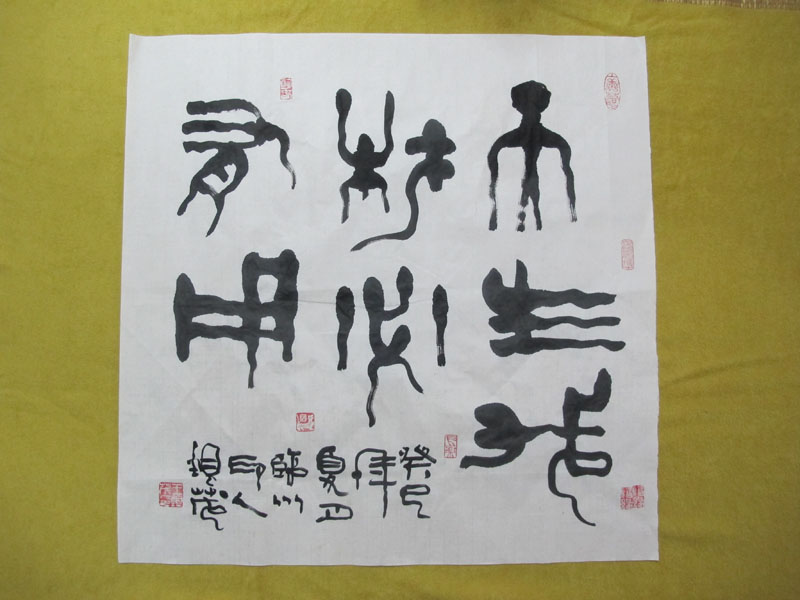 天生我
材必
有用
癸巳
年
夏月
臨川
印人
茂